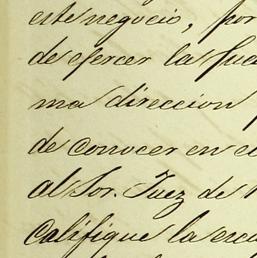 este negocio, por
de ejercer la Jue
ma direccion
de conocer en el
al Sor. Juez de
Califique la escu